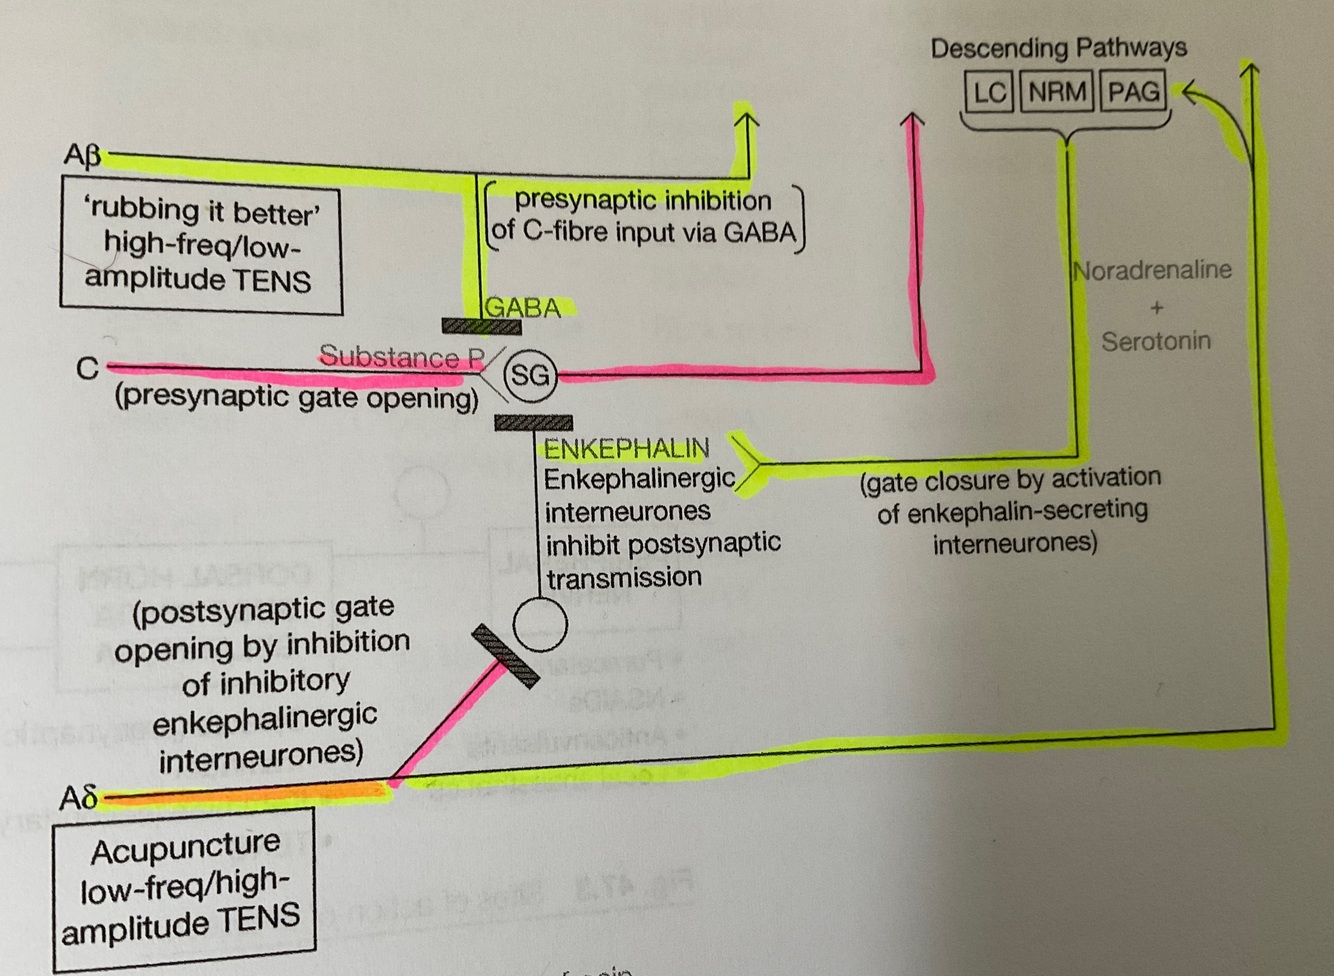 Descending Pathways
LC NRM PAG
Aβ
'rubbing it better'
high-freq/low-
amplitude TENS
presynaptic inhibition
of C-fibre input via GABA
GABA
Noradrenaline
+
Serotonin
Substance P
C
SG
(presynaptic gate opening)
ENKEPHALIN
Enkephalinergic
interneurones
inhibit postsynaptic
transmission
(gate closure by activation
of enkephalin-secreting
interneurones)
(postsynaptic gate
opening by inhibition
of inhibitory
enkephalinergic
interneurones)
Aδ
Acupuncture
low-freq/high-
amplitude TENS